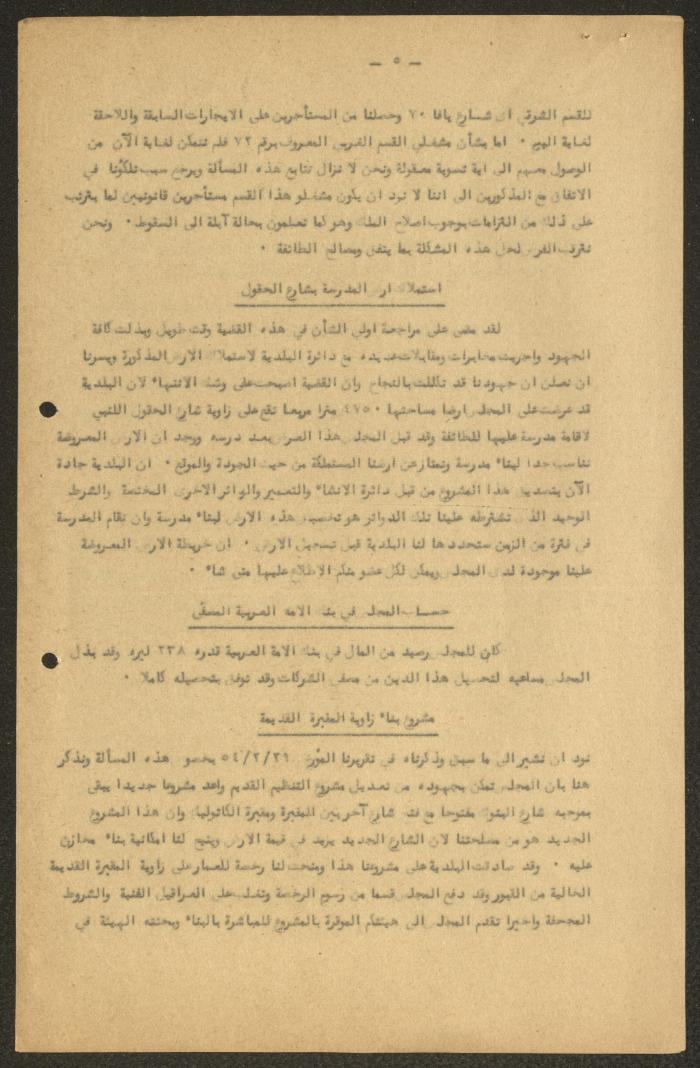 — ٥ —
للقسم الشرقي اى شارع يافا ٧٠ وحصلنا من المستأجرين على الايجارات السابقة واللاحقة
لغاية اليوم ٠ اما بشأن مشغلي القسم الغربي المعروف برقم ٧٢ فلم نتمكن لغاية الآن من
الوصول معهم الى اية تسوية معقولة ونحن لا نزال نتابع هذه المسألة ويرجع سبب تلكؤنا في
الاتفاق مع المذكورين الى اننا لا نود ان يكون مشغلو هذا القسم مستأجرين قانونيين لما يترتب
على ذلك من التزامات بوجوب اصلاح الملك وهو كما تعلمون بحالة آيلة الى السقوط ٠ ونحن
نترقب الفرص لحل هذه المشكلة بما يتفق ومصالح الطائفة ٠
استملاك ارض المدرسة بشارع الحقول
لقد مضى على مراجعة اولي الشأن في هذه القضية وقت طويل وبذلت كافة
الجهود واجريت مخابرات ومقابلات عديدة مع دائرة البلدية لاستملاك الارض المذكورة ويسرنا
ان نعلن ان جهودنا قد تكللت بالنجاح وان القضية اصبحت على وشك الانتهاء لان البلدية
قد عرضت على المجلس ارضا مساحتها ٤٧٥٠ مترا مربعا تقع على زاوية شارع الحقول اللنبي
لاقامة مدرسة عليها للطائفة وقد قبل المجلس هذا العرض بعد درسه ووجد ان الارض المعروضة
تناسب جدا لبناء مدرسة وتمتاز عن ارضنا المستملكة من حيث الجودة والموقع ٠ ان البلدية جادة
الآن بتصديق هذا المشروع من قبل دائرة الانشاء والتعمير والدوائر الاخرى المختصة والشرط
الوحيد الذي تشترطه علينا تلك الدوائر هو تخصيص هذه الارض لبناء مدرسة وان تقام المدرسة
في فترة من الزمن ستحددها لنا البلدية قبل تسجيل الارض ٠ ان خريطة الارض المعروضة
علينا موجودة لدى المجلس ويمكن لكل عضو منكم الاطلاع عليها متى شاء ٠
حساب المجلس في بنك الامة العربية المصفّى
كان للمجلس رصيد من المال في بنك الامة العربية قدره ٢٣٨ ليرة وقد بذل
المجلس مساعيه لتحصيل هذا الدين من مصفي الشركات وقد توفق بتحصيله كاملا ٠
مشروع بناء زاوية المقبرة القديمة
نود ان نشير الى ما سبق وذكرناه في تقريرنا المؤرخ ٥٤/٢/٢١ بخصوص هذه المسألة ونذكر
هنا بان المجلس تمكن بجهوده من تعديل مشروع التنظيم القديم واعد مشروعا جديدا يبقى
بموجبه شارع المتوك مفتوحا مع فتح شارع آخر بين المقبرة ومقبرة الكاثوليك وان هذا المشروع
الجديد هو من مصلحتنا لان الشارع الجديد يزيد في قيمة الارض ويتيح لنا امكانية بناء مخازن
عليه ٠ وقد صادقت البلدية على مشروعنا هذا ومنحت لنا رخصة للعمار على زاوية المقبرة القديمة
الخالية من القبور وقد دفع المجلس قسما من رسوم الرخصة وتغلب على العراقيل الفنية والشروط
المجحفة واخيرا تقدم المجلس الى هيئتكم الموقرة بالمشروع للمباشرة بالبناء وبحثته الهيئة في